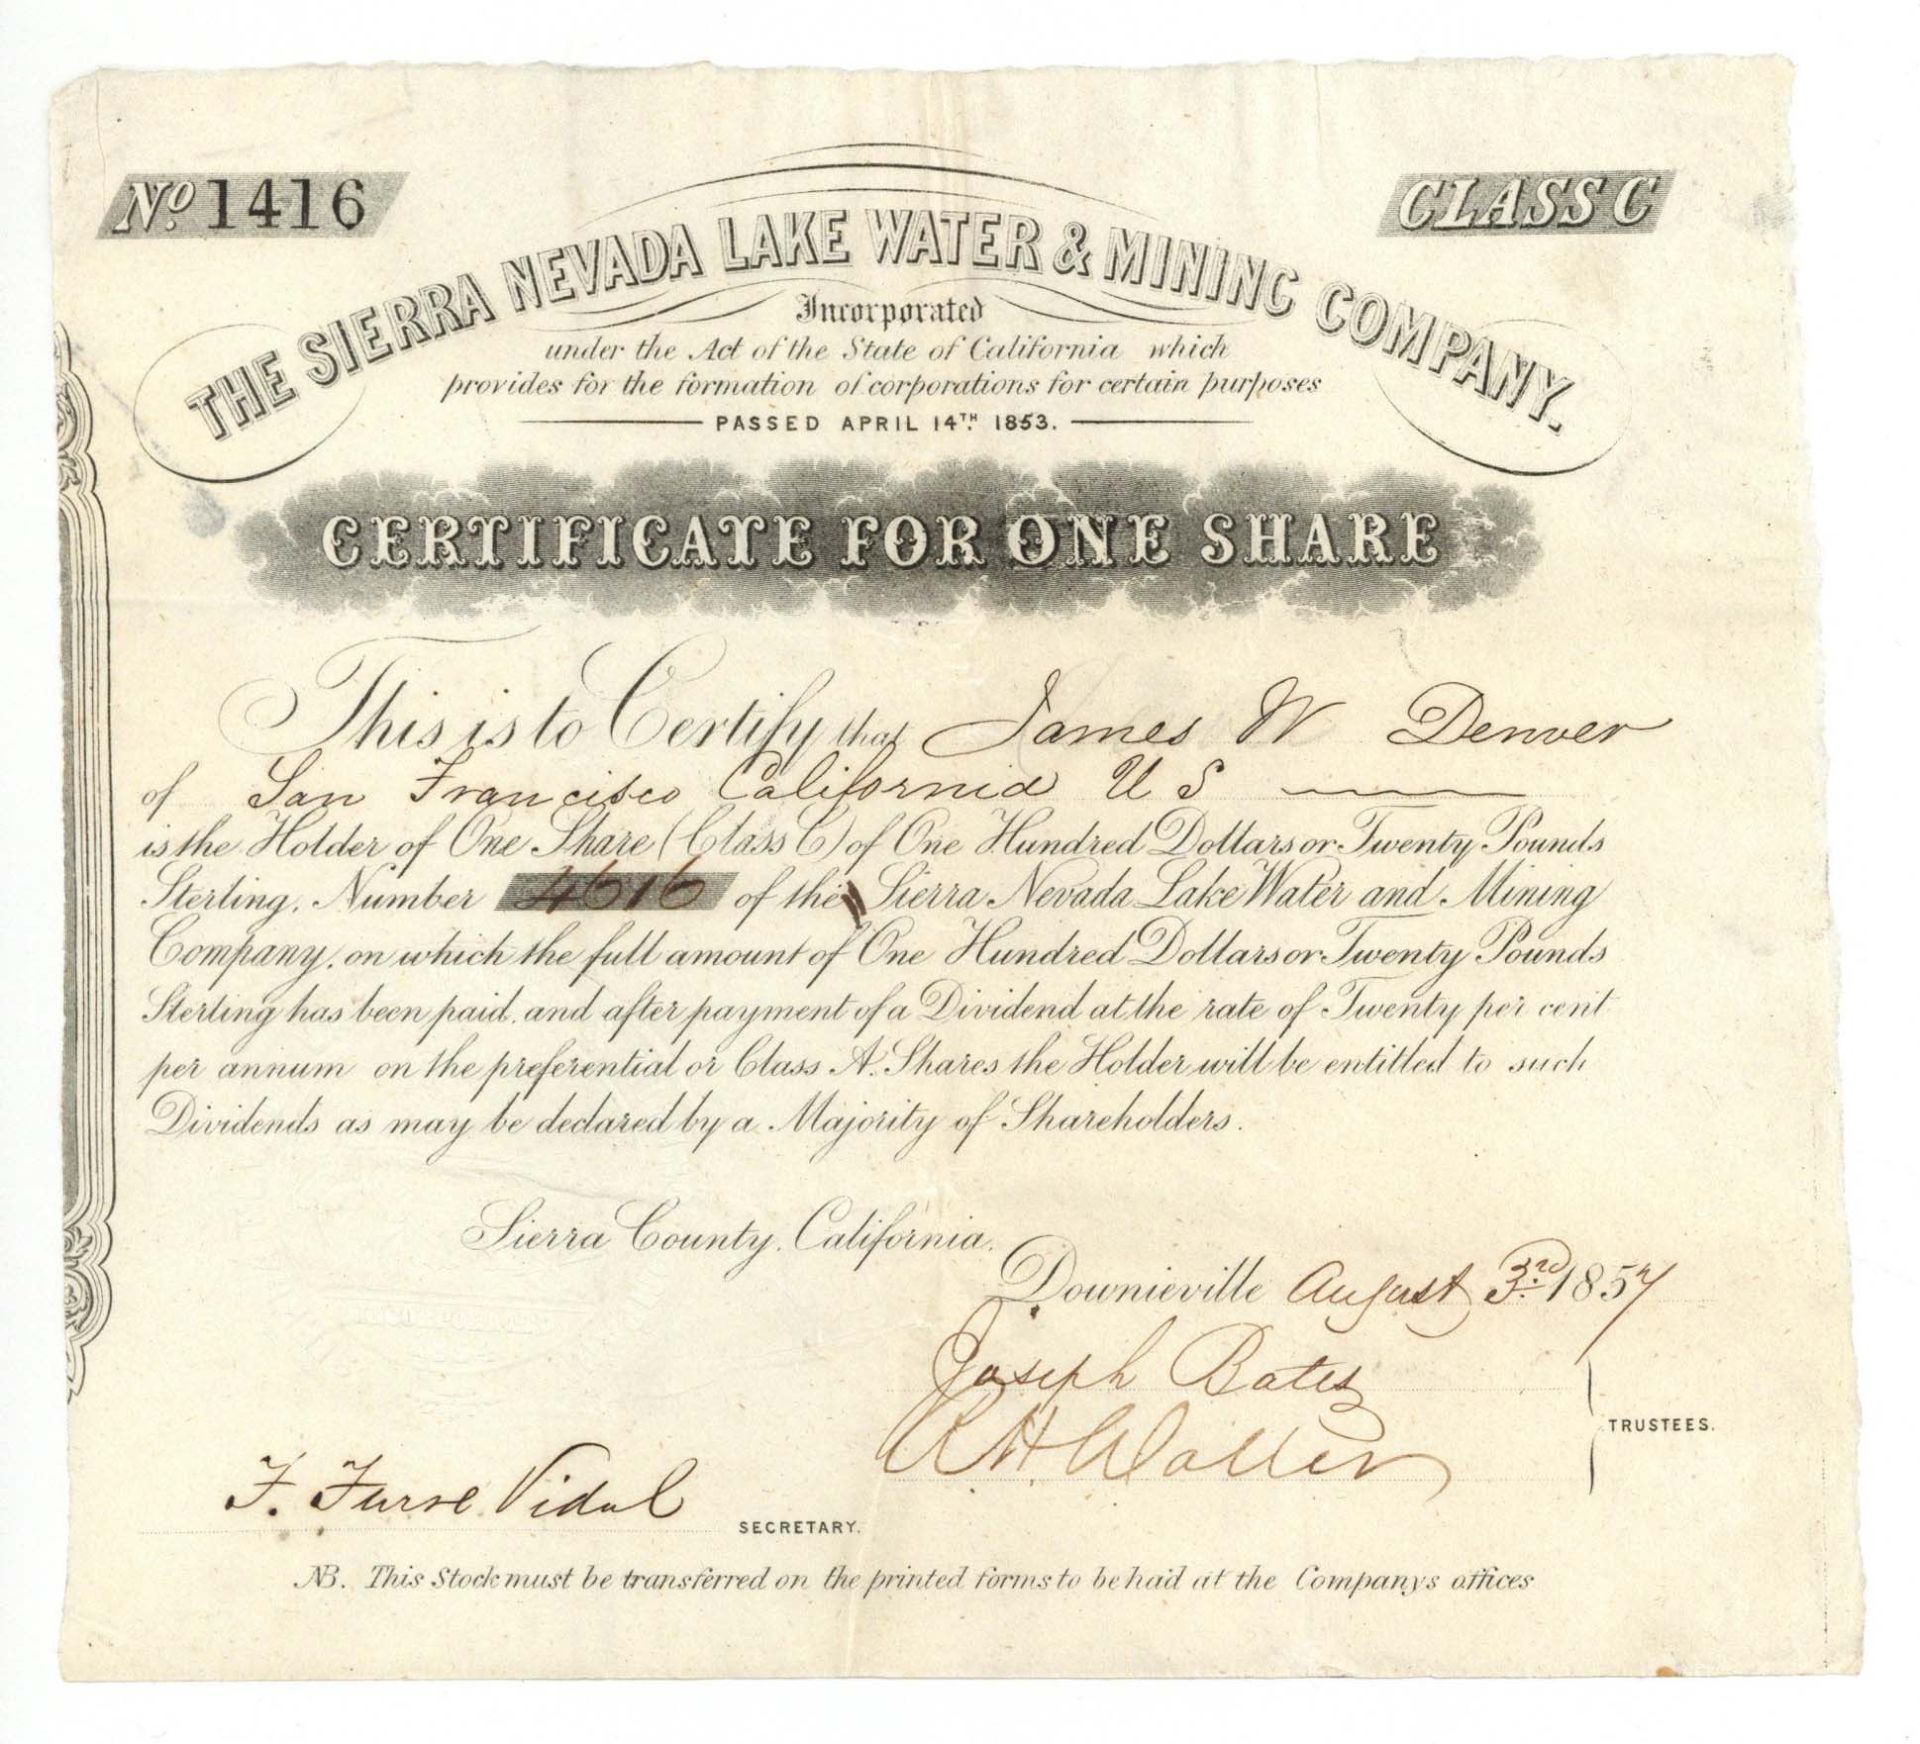 No. 1416
CLASS C
THE SIERRA NEVADA LAKE WATER & MINING COMPANY.
Incorporated
under the Act of the State of California which
provides for the formation of corporations for certain purposes
PASSED APRIL 14TH. 1853.
CERTIFICATE FOR ONE SHARE
This is to Certify that James W Denver
of San Francisco California U S
is the Holder of One Share (Class C) of One Hundred Dollars or Twenty Pounds
Sterling, Number 4616 of the Sierra Nevada Lake Water and Mining
Company, on which the full amount of One Hundred Dollars or Twenty Pounds
Sterling has been paid, and after payment of a Dividend at the rate of Twenty per cent
per annum on the preferential or Class A. Shares the Holder will be entitled to such
Dividends as may be declared by a Majority of Shareholders.
Sierra County, California.
Downieville August 3rd. 1857
Joseph Bates
R H Waller
TRUSTEES.
F. Furse Vidal
SECRETARY.
NB. This Stock must be transferred on the printed forms to be had at the Companys offices